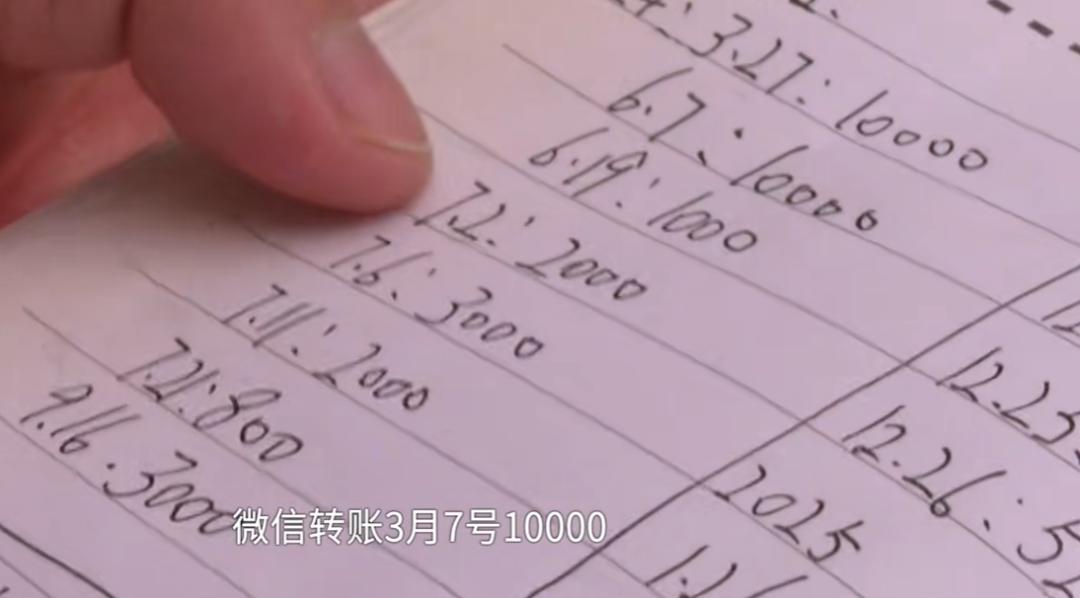 3.27:10000
6.7:10000
6.19:1000
7.2:2000
7.6:3000
7.11:2000
7.21:800
9.16.3000
12.25
12.26:5
2025
微信转账3月7号10000